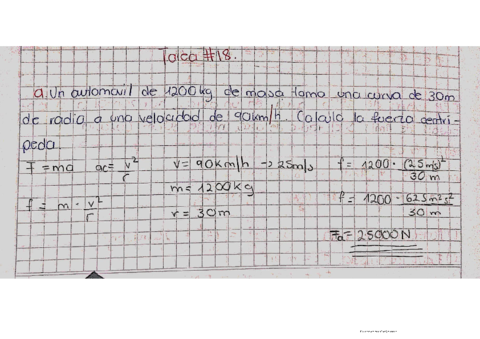 Tarea #18.
a. Un automovil de 1200kg de masa toma una curva de 30m
de radio a una velocidad de 90km/h. Calcula la fuerza centri-
peda.
F = ma ac = v²/r v = 90km/h -> 25m/s f = 1200 · (25m/s)²/30 m
m = 1200kg
f = m · v²/r r = 30m f = 1200 · 625m²s²/30 m
= 25000N